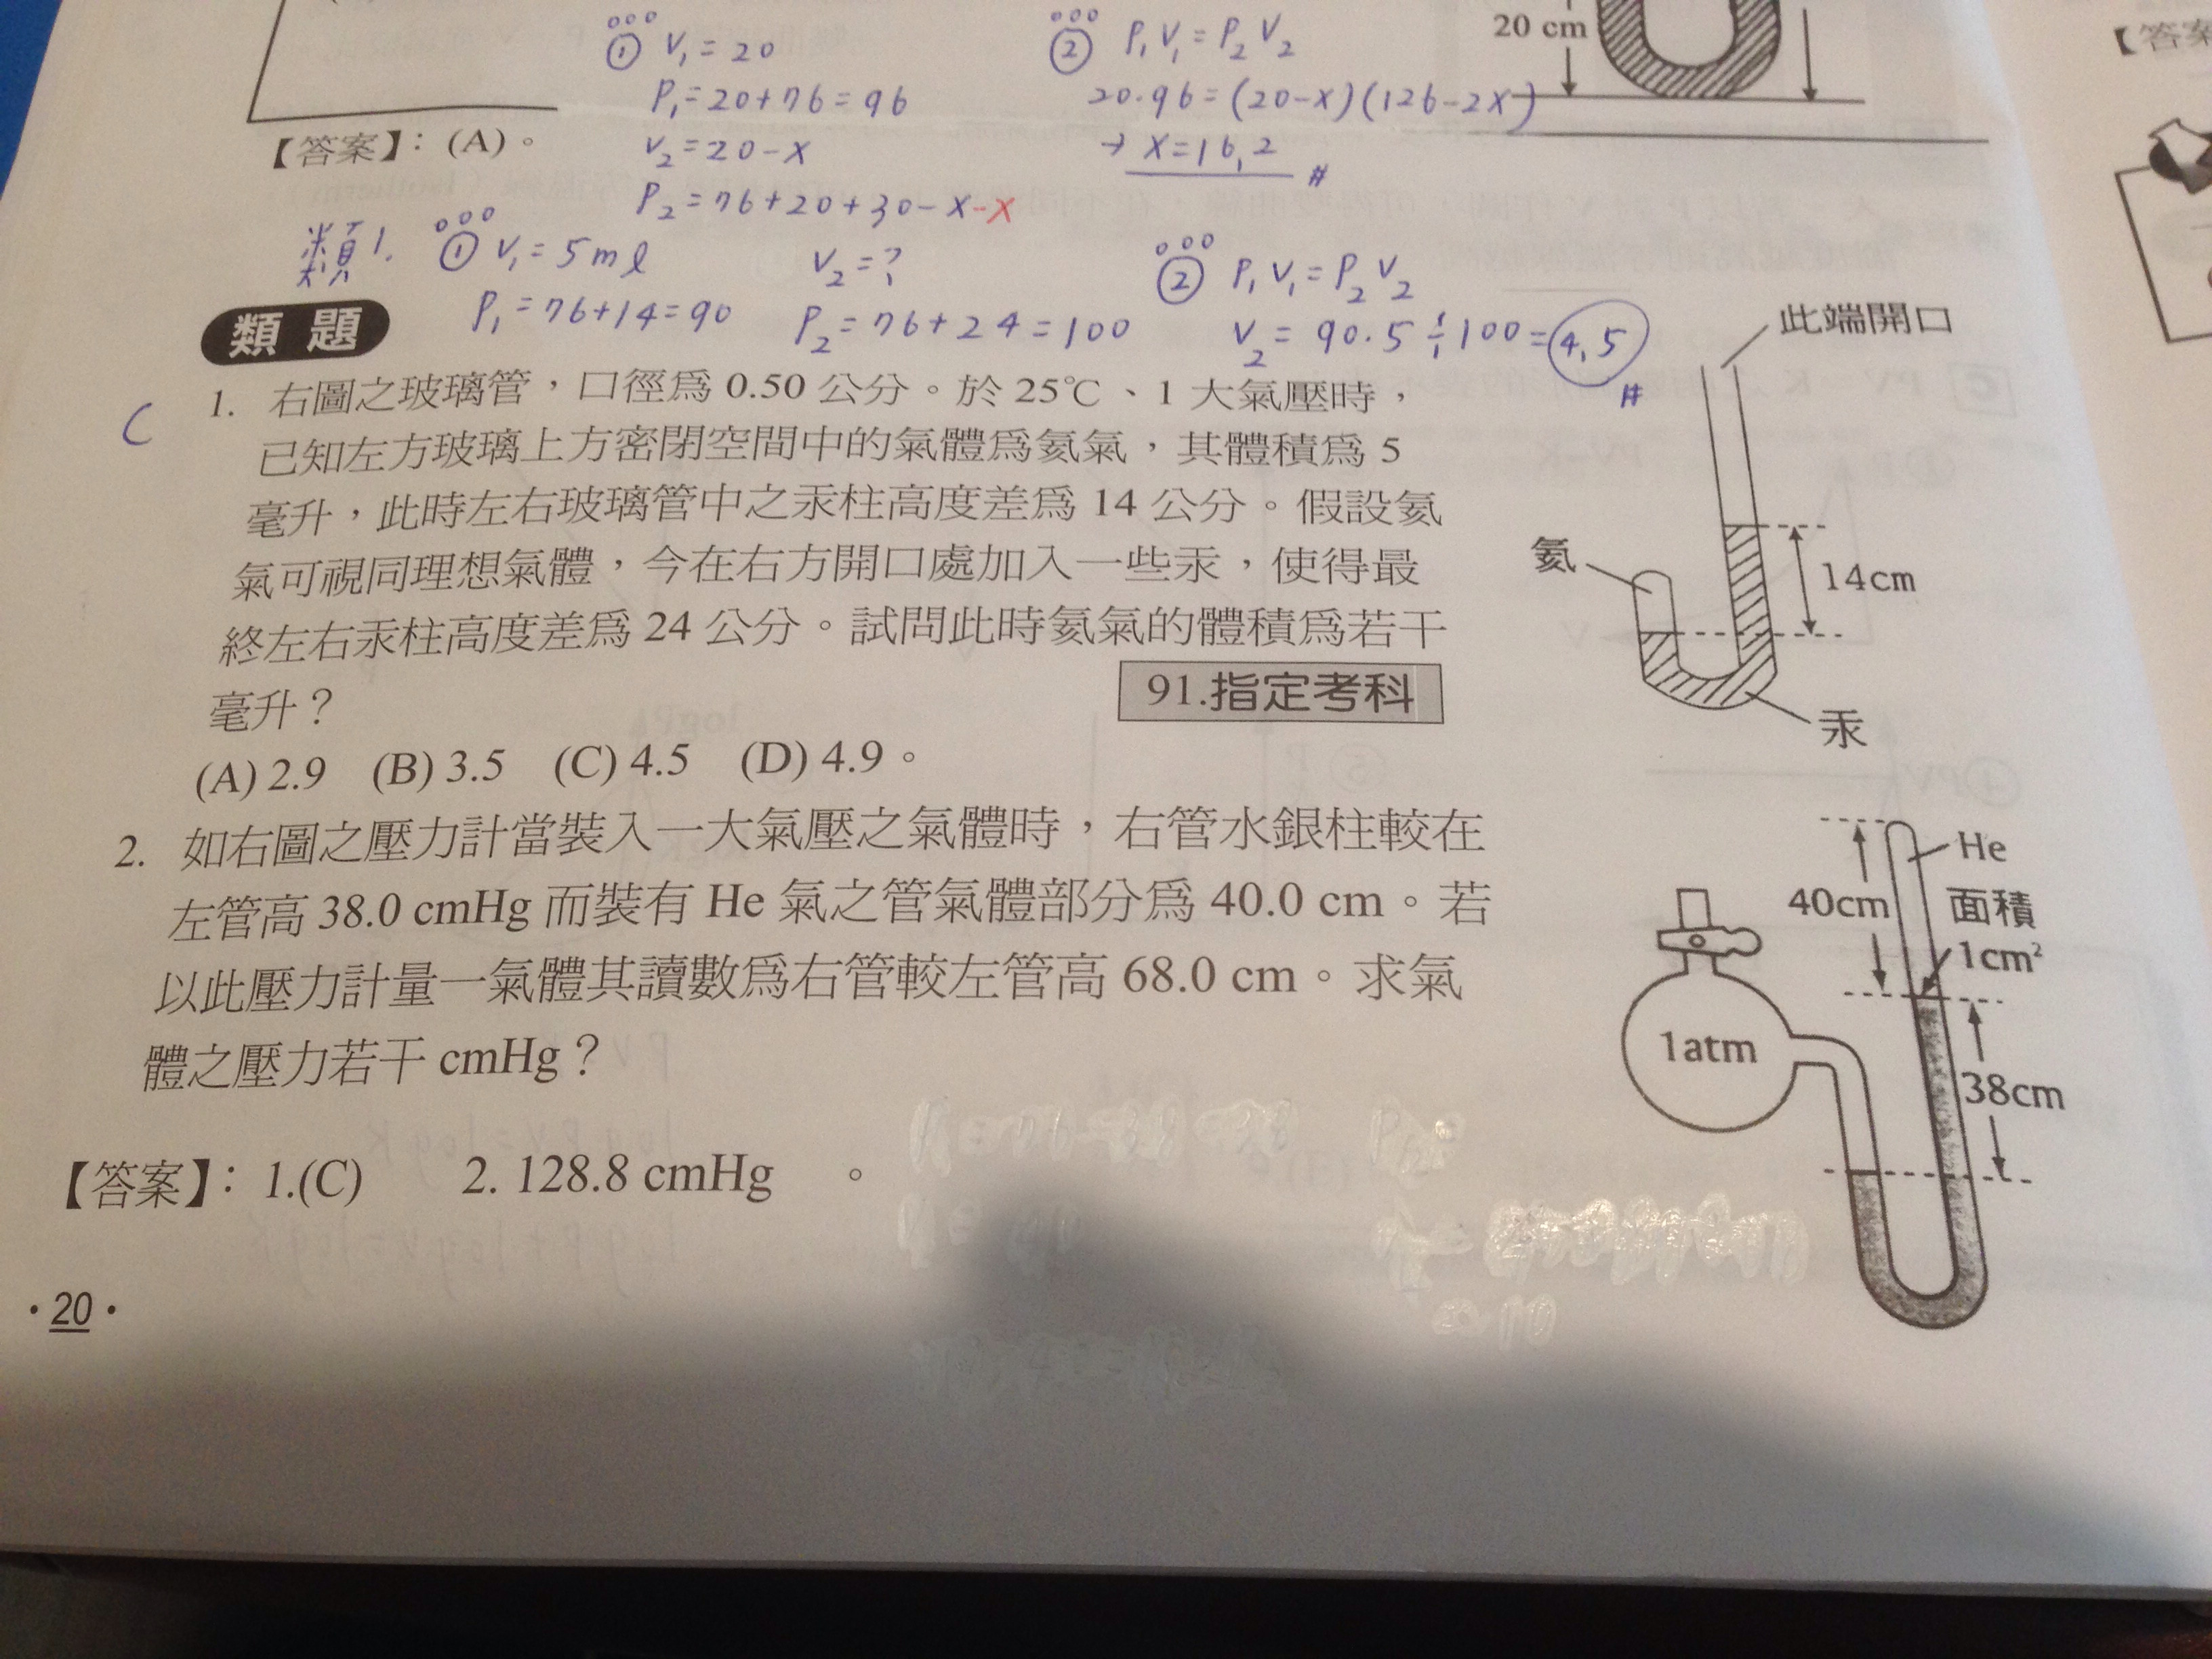 ① V₁=20
P₁=20+76=96
V₂=20-X
P₂=76+20+30-X-X
② P₁V₁=P₂V₂
20·96=(20-X)(126-2X)
→ X=16,2 #
20 cm
【答案】：(A)。
【答案
類1. ① V₁=5ml V₂=?
P₁=76+14=90 P₂=76+24=100
② P₁V₁=P₂V₂
V₂=90·5÷100=4,5 #
類題
C
1. 右圖之玻璃管，口徑爲 0.50 公分。於 25℃、1 大氣壓時，
已知左方玻璃上方密閉空間中的氣體爲氦氣，其體積爲 5
毫升，此時左右玻璃管中之汞柱高度差爲 14 公分。假設氦
氣可視同理想氣體，今在右方開口處加入一些汞，使得最
終左右汞柱高度差爲 24 公分。試問此時氦氣的體積爲若干
毫升？
91.指定考科
(A) 2.9 (B) 3.5 (C) 4.5 (D) 4.9。
此端開口
氦
14cm
汞
2. 如右圖之壓力計當裝入一大氣壓之氣體時，右管水銀柱較在
左管高 38.0 cmHg 而裝有 He 氣之管氣體部分爲 40.0 cm。若
以此壓力計量一氣體其讀數爲右管較左管高 68.0 cm。求氣
體之壓力若干 cmHg？
He
40cm
面積
1cm²
1atm
38cm
【答案】：1.(C) 2. 128.8 cmHg 。
·20·